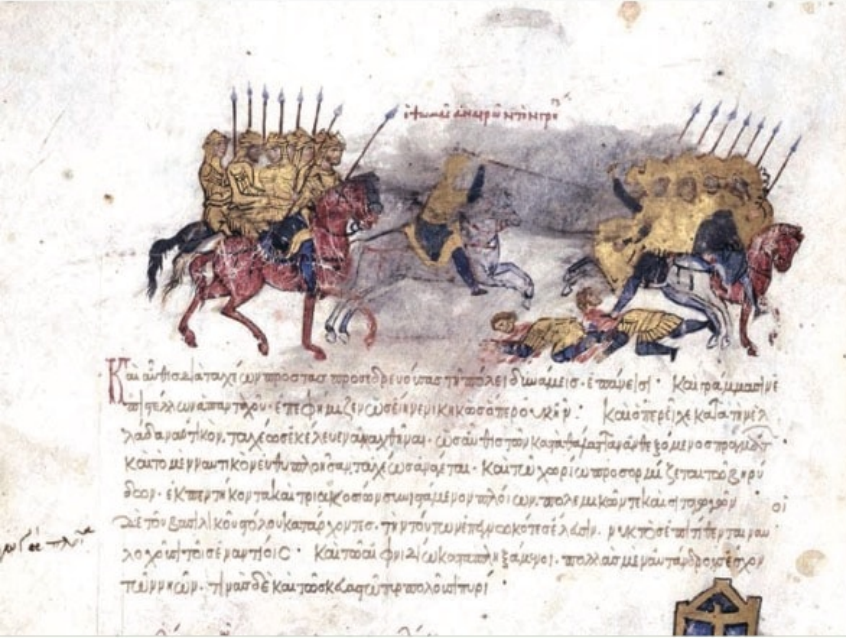 ὁ θωμᾶς ἀναιρῶν τὸν γρ
Καὶ αὖθις μετὰ τάχους πρὸς τὰς προσεδρευούσας τῇ πόλει δυνάμεις ἐπάνεισι. Καὶ γράμμασιν ἐ
πιστέλλων ἁπανταχοῦ. ἐπεφήμιζεν ὡς εἴη νενικηκώς ὅπερ οὐκ ἦν. Καὶ ὅπερ εἶχε κατὰ τὴν ἑλ
λάδα ναυτικὸν. ταχέως ἐκέλευεν ἀναχθῆναι. ὡς αὖθις τῶν κατὰ θάλατταν ἀνθεξόμενος πραγμάτ
Καὶ τὸ μὲν ναυτικὸν εὐθυπλοῆσαν, ταχέως ἀνάγεται. Καὶ τῷ χωρίῳ προσορμίζεται τῶ βηρύ
δων. ἐκ πεντήκοντα καὶ τριακοσίων συνηγμένον πλοίων. πολεμικῶν τε καὶ σιταγωγῶν οἱ
δὲ τοῦ βασιλικοῦ στόλου κατάρχοντες. τὴν τούτων ἐπεγνωκότες ἔλευσιν. νυκτὸς ἐπιτίθενται ναυ
λοχοῦσι τοῖς ἐναντίοις. Καὶ τῷ αἰφνιδίῳ καταπληξάμενοι. πολλὰς μὲν αὐτάνδρους ἔσχον
τῶν νηῶν. τινὰς δὲ καὶ τῷ σκευαστῷ πυρπολοῦσι πυρί.